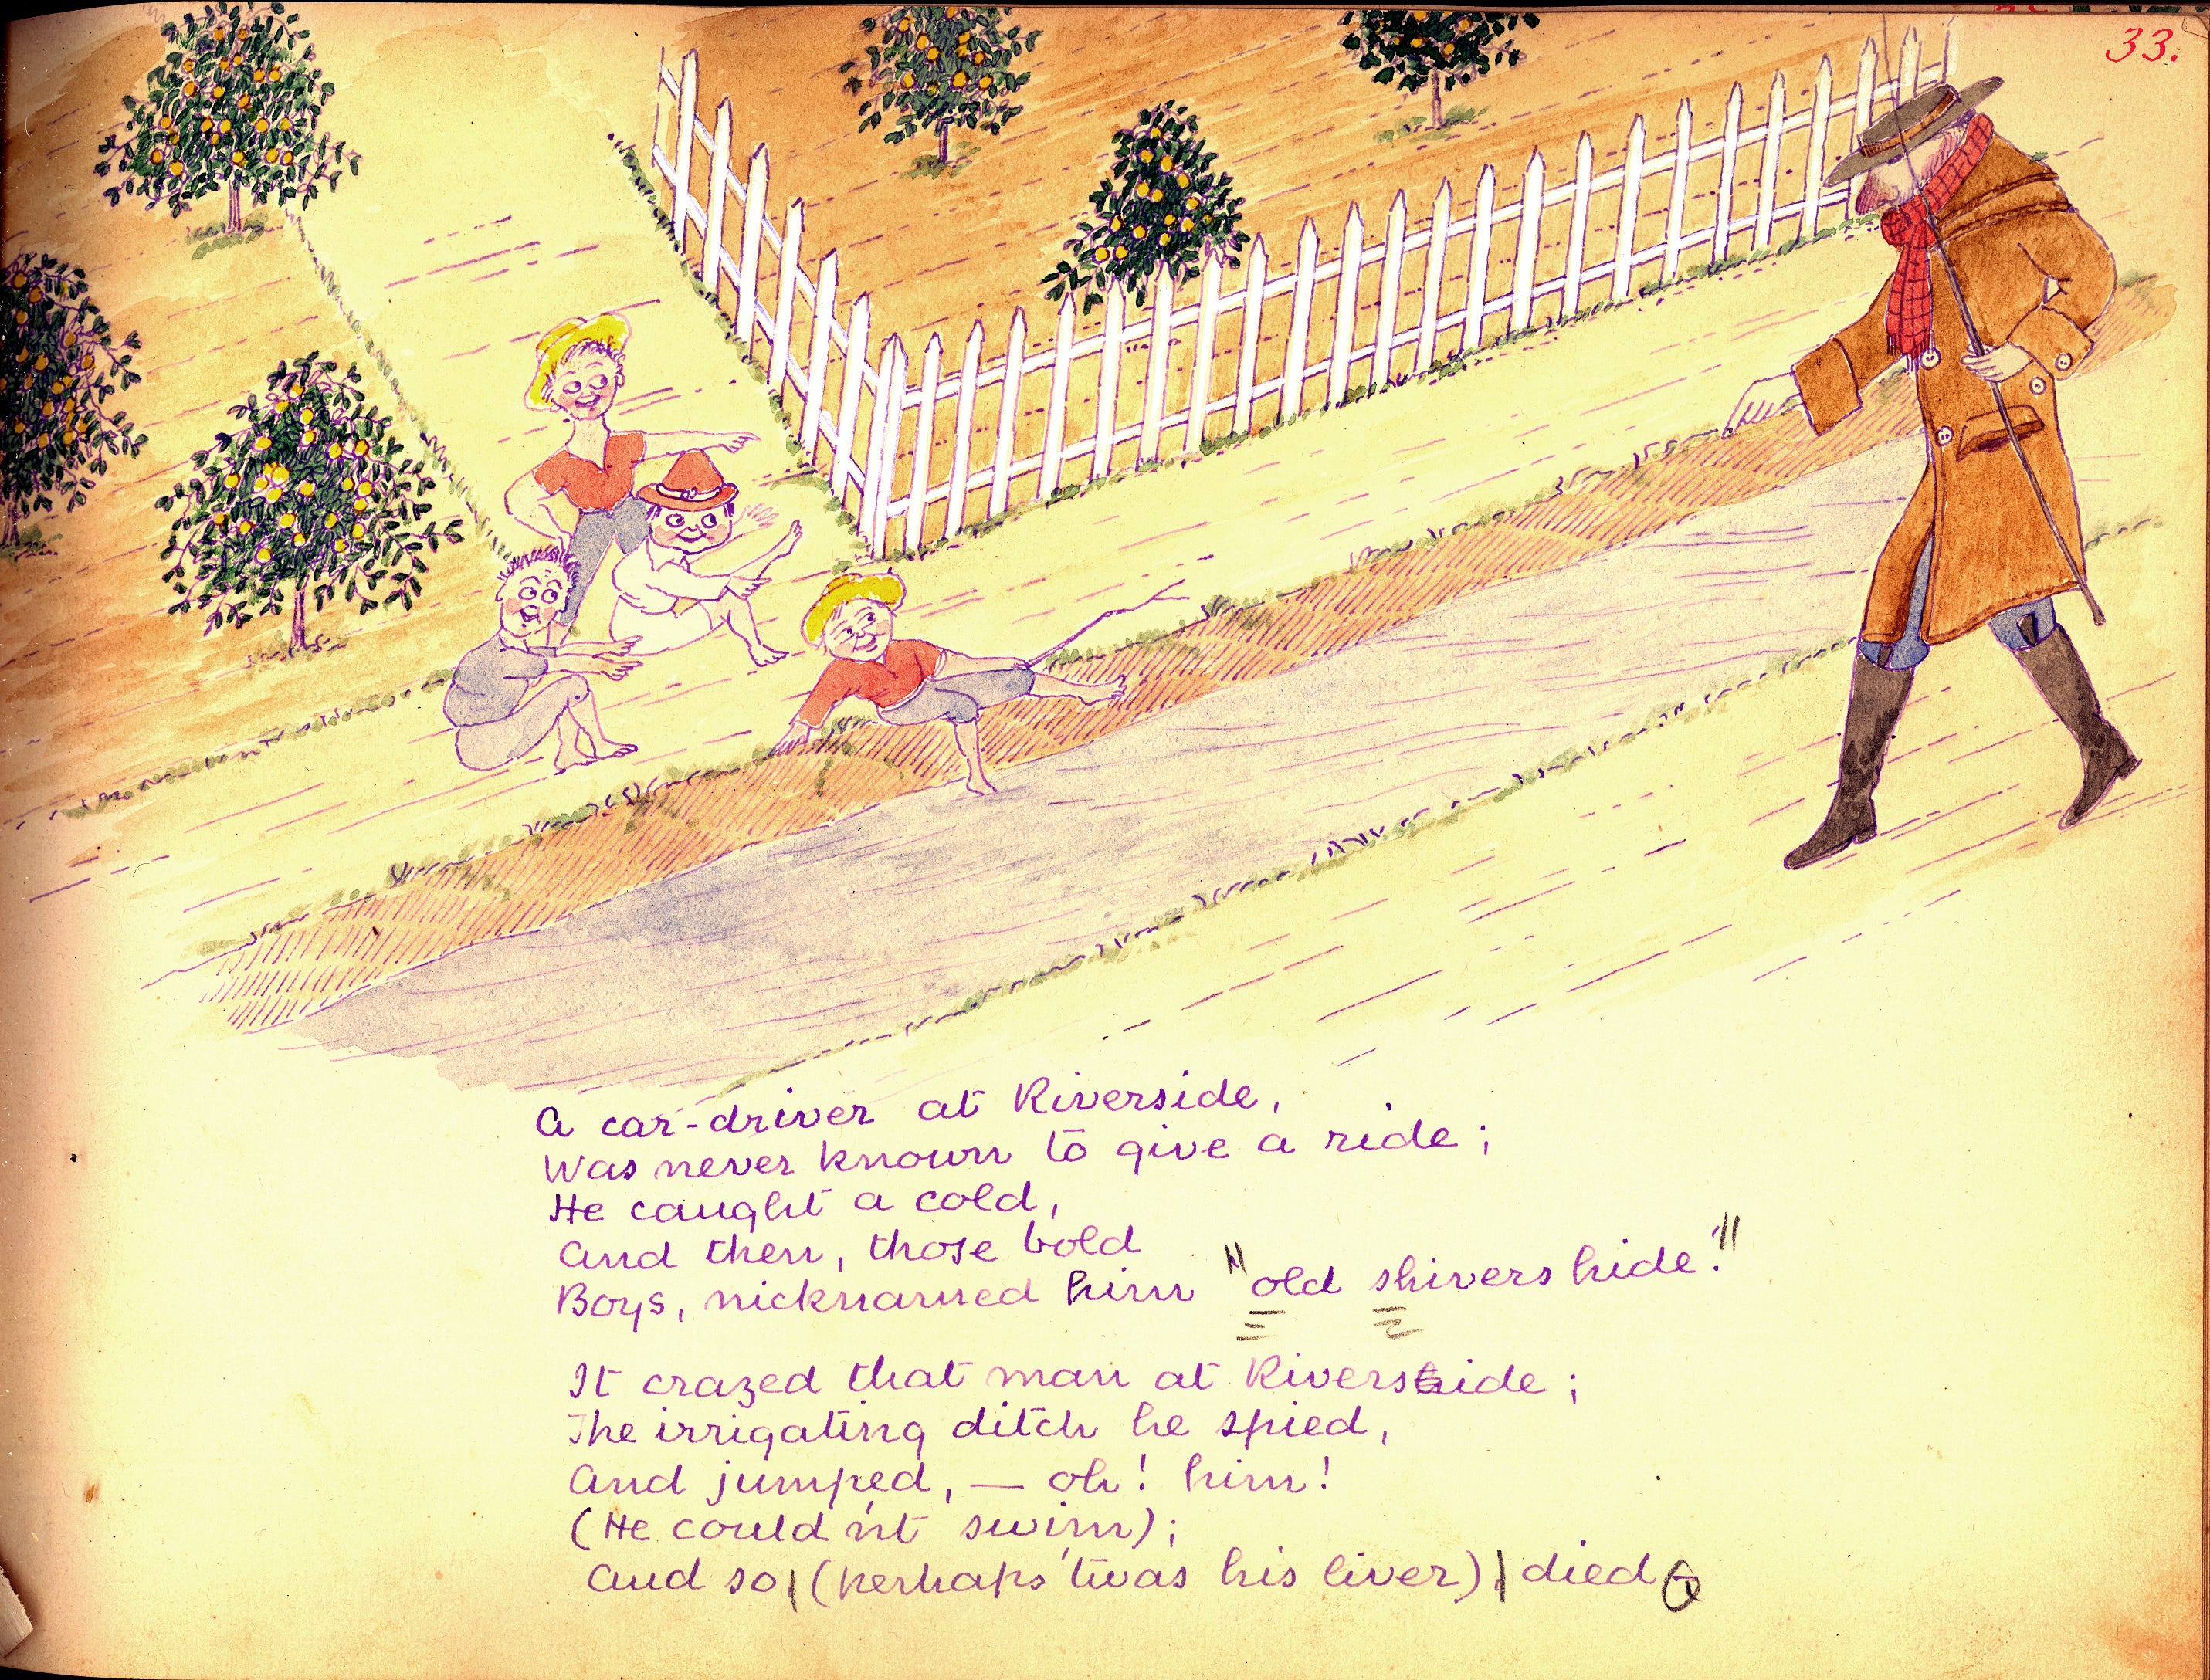 33.
A car-driver at Riverside,
Was never known to give a ride;
He caught a cold,
And then, those bold
Boys, nicknamed him "old shivers hide."
It crazed that man at Riverside;
The irrigating ditch he spied,
And jumped, — oh! him!
(He could n't swim);
And so, (perhaps 'twas his liver), died